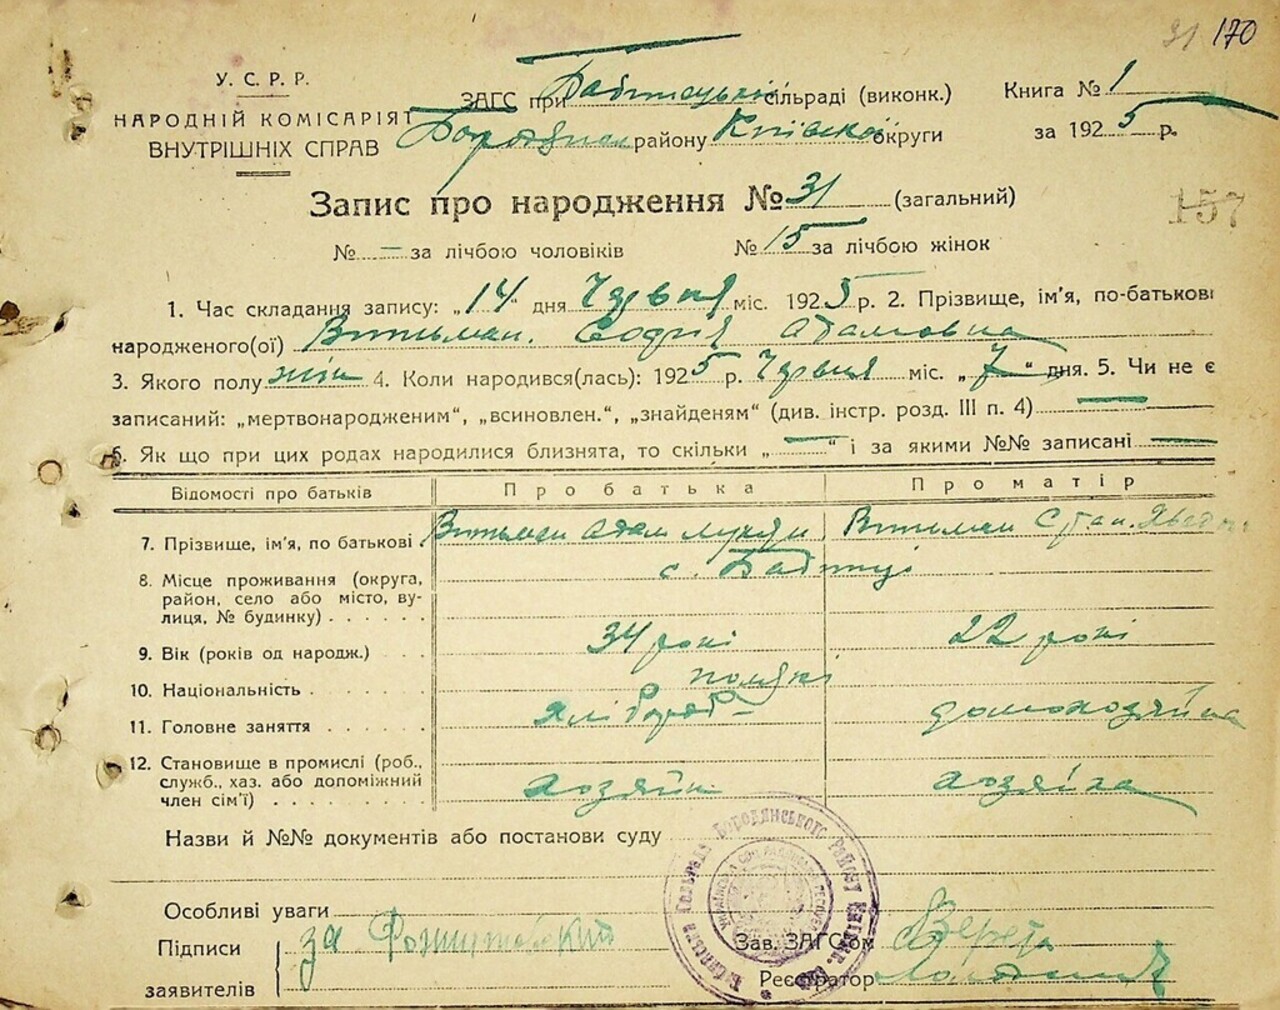 31 170
У. С. Р. Р.
НАРОДНІЙ КОМІСАРІЯТ
ВНУТРІШНІХ СПРАВ
ЗАГС при Бабинецькій сільраді (виконк.)
Бородянск району Київської округи
Книга № 1
за 1925 р.
157
Запис про народження № 31 (загальний)
№ — за лічбою чоловіків № 15 за лічбою жінок
1. Час складання запису: „14" дня Червня міс. 1925 р. 2. Прізвище, ім'я, по-батькові
народженого(ої) Витьман. Софія Адамовна
3. Якого полу жін 4. Коли народився(лась): 1925 р. Червня міс. „7" дня. 5. Чи не є
записаний: „мертвонародженим", „всиновлен.", „знайденям" (див. інстр. розд. III п. 4) —
6. Як що при цих родах народилися близнята, то скільки „—" і за якими №№ записані —
Відомості про батьків Про батька Про матір
7. Прізвище, ім'я, по батькові Витьман Адам Витьман
8. Місце проживання (округа,
район, село або місто, ву-
лиця, № будинку) с. Бабинці
9. Вік (років од народж.) 34 років 22 років
10. Національність поляки
11. Головне заняття хлібороб домохозяйка
12. Становище в промислі (роб.,
служб., хаз. або допоміжний
член сім'ї) хозяїн хозяйка
Назви й №№ документів або постанови суду
Особливі уваги
Підписи
заявителів
за
Зав. ЗАГС'ом
Реєстратор
Бородянського району Київ.